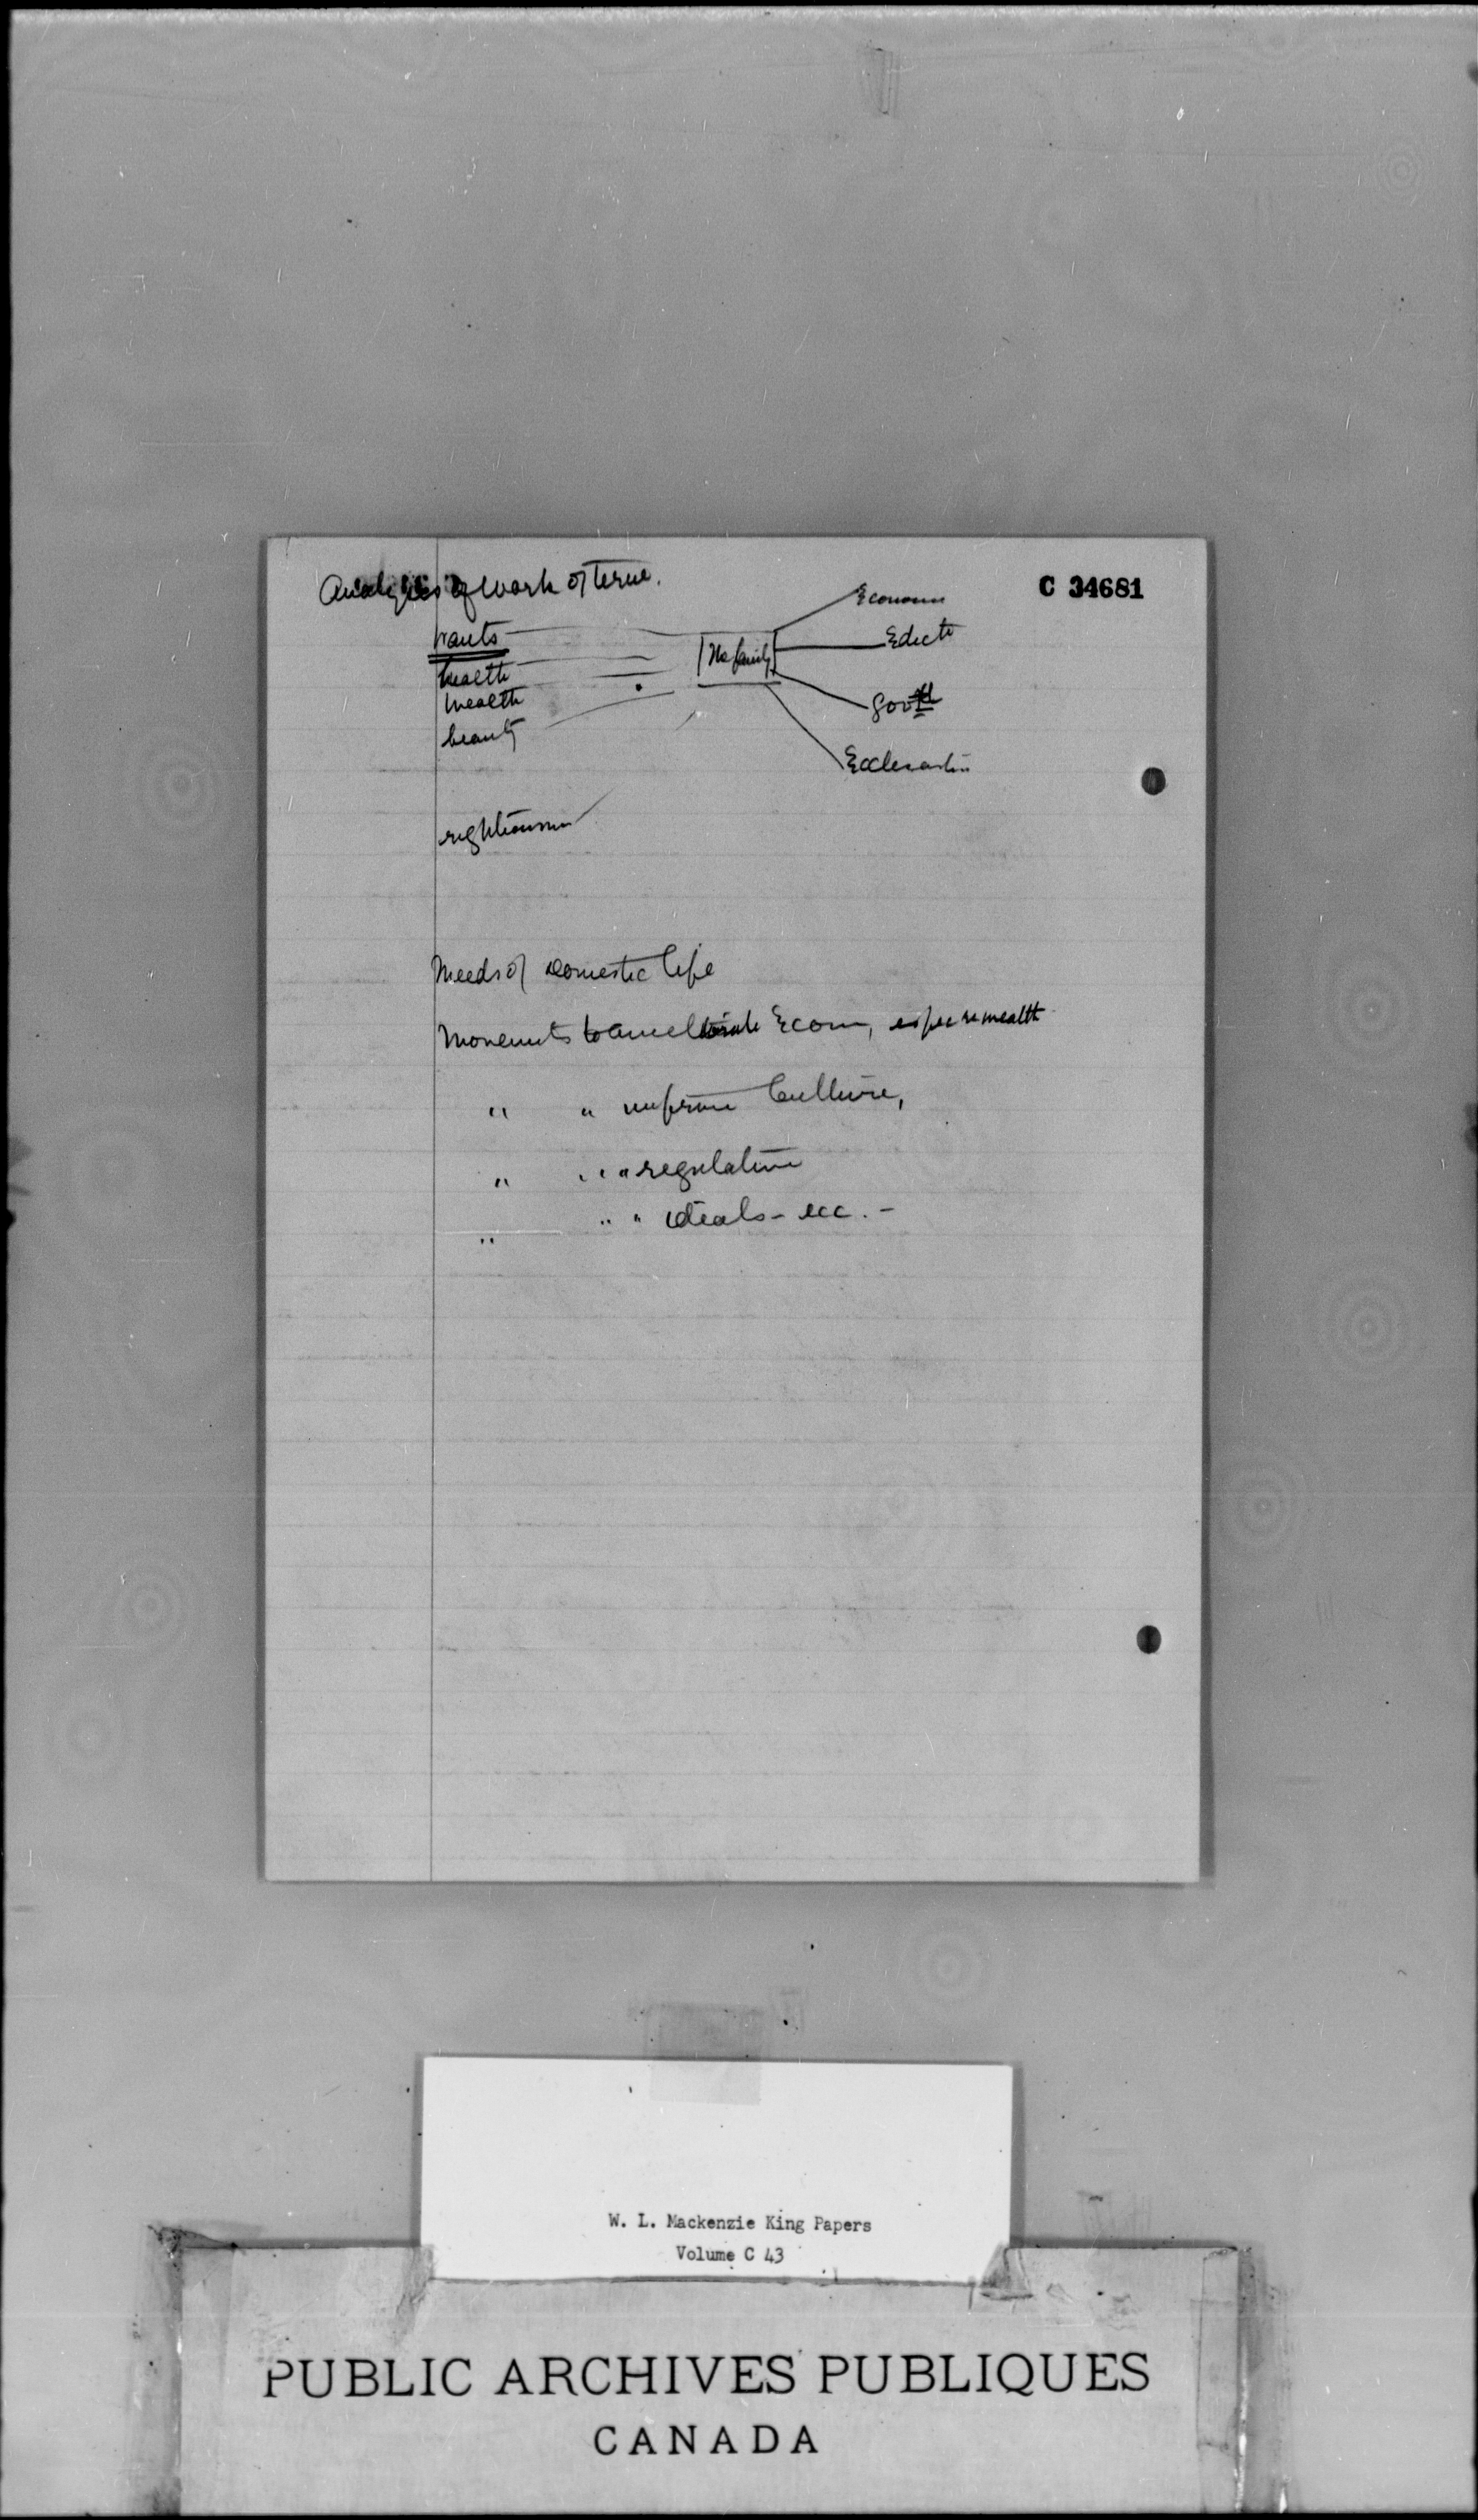 Analysis of work of term.
C 34681
wants
health
wealth
beauty
righteousn
The family
Econom
Educt
Govt
Ecclesiasti
Needs of Domestic life
Movements to ameliorate Econ, espec re wealth
" " improve Culture,
" " " regulation
" " " ideals - ecc. -
W. L. Mackenzie King Papers
Volume C 43
PUBLIC ARCHIVES PUBLIQUES
CANADA